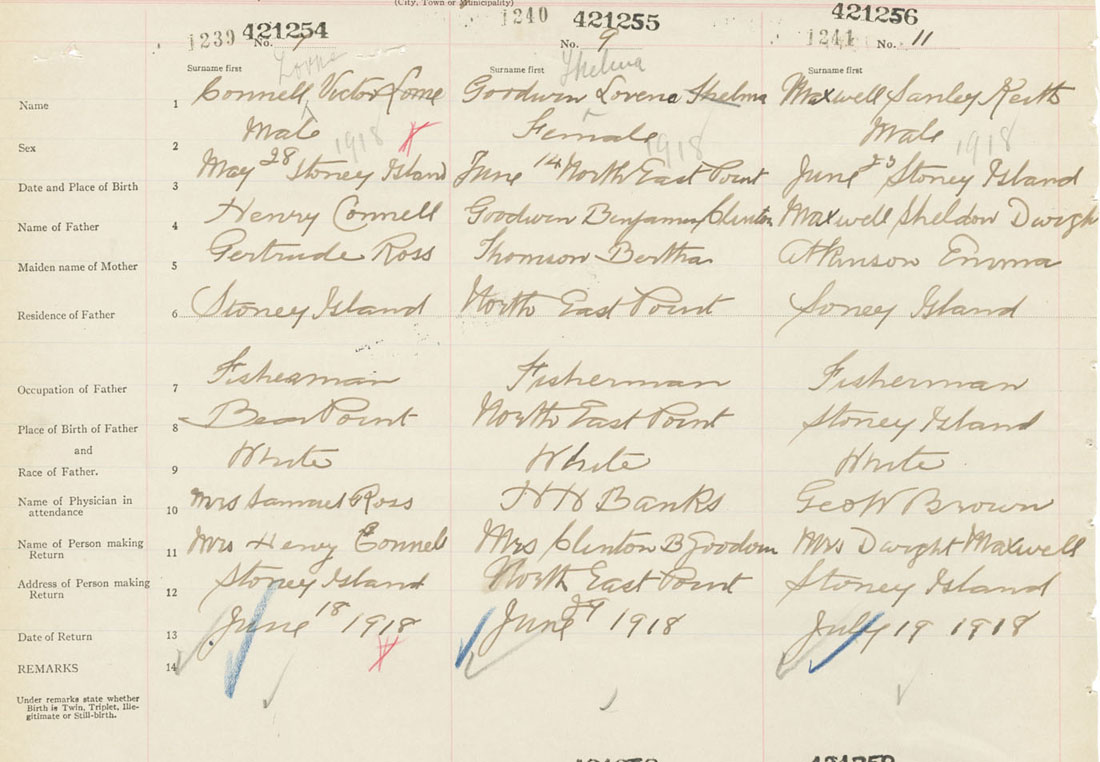 (City, Town or Municipality)
1239 421254 1240 421255 1241 421256
No. 7 No. 9 No. 11
Lorne Thelma
Surname first Surname first Surname first
Name 1 Connell, Victor Lorne Goodwin Lovena Thelma Maxwell Sanley Keith
Sex 2 Male 1918 Female 1918 Male 1918
Date and Place of Birth 3 May 28 Stoney Island June 14 North East Point June 23 Stoney Island
Name of Father 4 Henry Connell Goodwin Benjamin Clinton Maxwell Sheldon Dwigh
Maiden name of Mother 5 Gertrude Ross Thomson Bertha Atkinson Emma
Residence of Father 6 Stoney Island North East Point Soney Island
Occupation of Father 7 Fisherman Fisherman Fisherman
Place of Birth of Father 8 Bear Point North East Point Stoney Island
and
Race of Father. 9 White White White
Name of Physician in attendance 10 Mrs Samuel Ross H H Banks Geo W Brown
Name of Person making Return 11 Mrs Henry Connell Mrs Clinton B Goodwin Mrs Dwight Maxwell
Address of Person making Return 12 Stoney Island North East Point Stoney Island
Date of Return 13 June 18 1918 June 1918 July 19 1918
REMARKS 14
Under remarks state whether
Birth is Twin, Triplet, Ille-
gitimate or Still-birth.